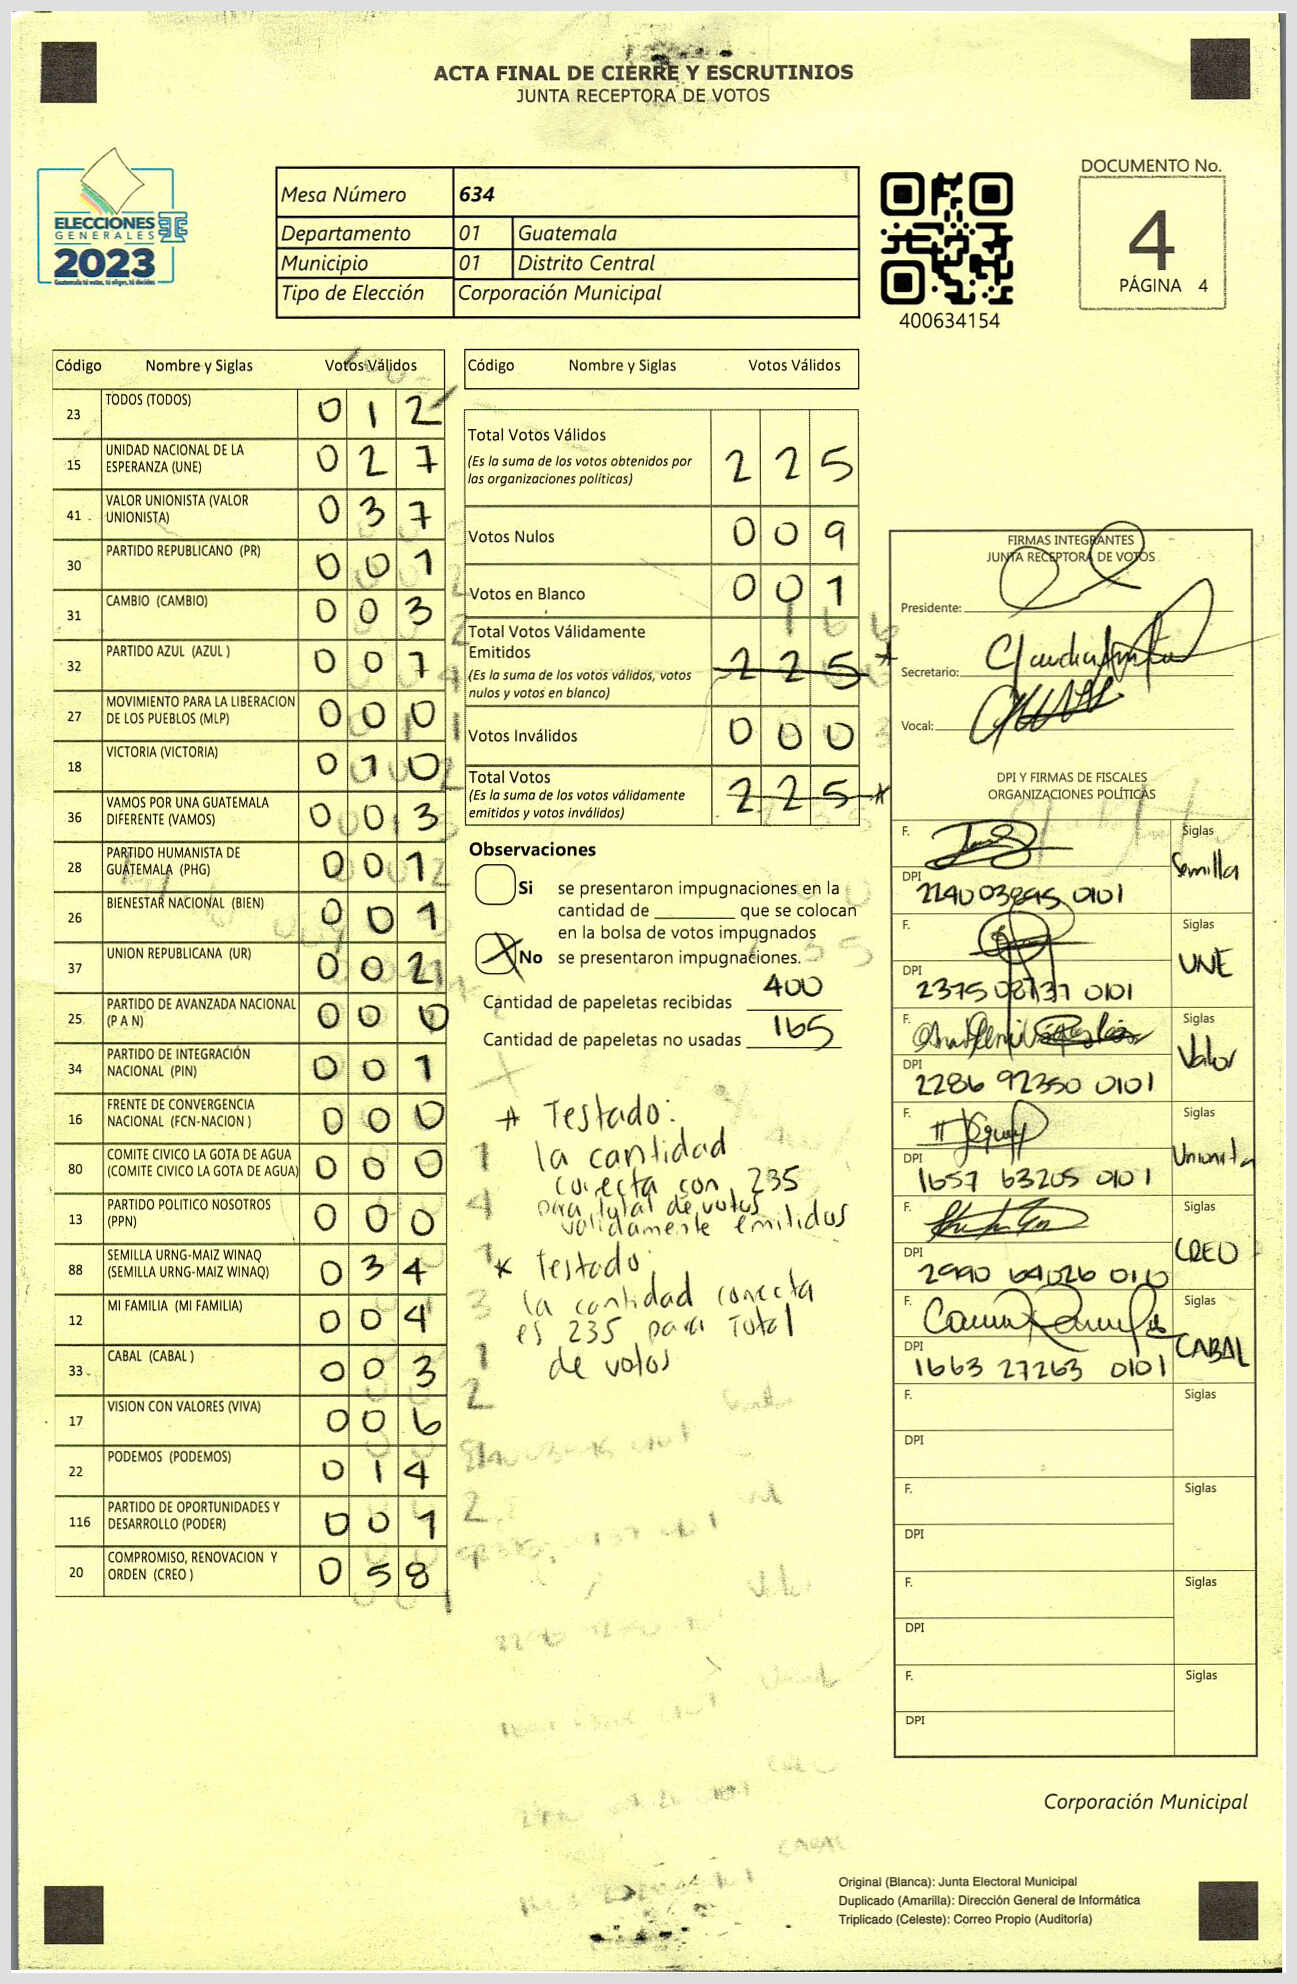 ACTA FINAL DE CIERRE Y ESCRUTINIOS
JUNTA RECEPTORA DE VOTOS
ELECCIONES
GENERALES
2023
Guatemala tú votas, tú eliges, tú decides
Mesa Número 634
Departamento 01 Guatemala
Municipio 01 Distrito Central
Tipo de Elección Corporación Municipal
400634154
DOCUMENTO No.
4
PÁGINA 4
Código Nombre y Siglas Votos Válidos
23 TODOS (TODOS) 0 1 2
15 UNIDAD NACIONAL DE LA
ESPERANZA (UNE) 0 2 7
41 VALOR UNIONISTA (VALOR
UNIONISTA) 0 3 7
30 PARTIDO REPUBLICANO (PR) 0 0 1
31 CAMBIO (CAMBIO) 0 0 3
32 PARTIDO AZUL (AZUL ) 0 0 7
27 MOVIMIENTO PARA LA LIBERACION
DE LOS PUEBLOS (MLP) 0 0 0
18 VICTORIA (VICTORIA) 0 1 0
36 VAMOS POR UNA GUATEMALA
DIFERENTE (VAMOS) 0 0 3
28 PARTIDO HUMANISTA DE
GUATEMALA (PHG) 0 0 1
26 BIENESTAR NACIONAL (BIEN) 0 0 1
37 UNION REPUBLICANA (UR) 0 0 2
25 PARTIDO DE AVANZADA NACIONAL
(P A N) 0 0 0
34 PARTIDO DE INTEGRACIÓN
NACIONAL (PIN) 0 0 1
16 FRENTE DE CONVERGENCIA
NACIONAL (FCN-NACION ) 0 0 0
80 COMITE CIVICO LA GOTA DE AGUA
(COMITE CIVICO LA GOTA DE AGUA) 0 0 0
13 PARTIDO POLITICO NOSOTROS
(PPN) 0 0 0
88 SEMILLA URNG-MAIZ WINAQ
(SEMILLA URNG-MAIZ WINAQ) 0 3 4
12 MI FAMILIA (MI FAMILIA) 0 0 4
33 CABAL (CABAL ) 0 0 3
17 VISION CON VALORES (VIVA) 0 0 6
22 PODEMOS (PODEMOS) 0 1 4
116 PARTIDO DE OPORTUNIDADES Y
DESARROLLO (PODER) 0 0 1
20 COMPROMISO, RENOVACION Y
ORDEN (CREO ) 0 5 8
Código Nombre y Siglas Votos Válidos
Total Votos Válidos
(Es la suma de los votos obtenidos por
las organizaciones políticas) 2 2 5
Votos Nulos 0 0 9
Votos en Blanco 0 0 1
Total Votos Válidamente
Emitidos 2 2 5 *
(Es la suma de los votos válidos, votos
nulos y votos en blanco)
Votos Inválidos 0 0 0
Total Votos 2 2 5 *
(Es la suma de los votos válidamente
emitidos y votos inválidos)
Observaciones
Si se presentaron impugnaciones en la
cantidad de ________ que se colocan
en la bolsa de votos impugnados
X No se presentaron impugnaciones.
Cantidad de papeletas recibidas 400
Cantidad de papeletas no usadas 165
* Testado:
la cantidad
correcta con 235
para total de votos
validamente emitidos
* Testado:
la cantidad correcta
es 235 para Total
de votos
FIRMAS INTEGRANTES
JUNTA RECEPTORA DE VOTOS
Presidente:
Secretario:
Vocal:
DPI Y FIRMAS DE FISCALES
ORGANIZACIONES POLÍTICAS
F. Siglas
Semilla
DPI
F. Siglas
UNE
DPI 2375 08737 0101
F. Siglas
Valor
DPI 2286 92350 0101
F. Siglas
Unionista
DPI 1657 63205 0101
F. Siglas
CREO
DPI 2990 64026 0110
F. Siglas
CABAL
DPI 1663 27263 0101
F. Siglas
DPI
F. Siglas
DPI
F. Siglas
DPI
F. Siglas
DPI
Corporación Municipal
Original (Blanca): Junta Electoral Municipal
Duplicado (Amarilla): Dirección General de Informática
Triplicado (Celeste): Correo Propio (Auditoría)